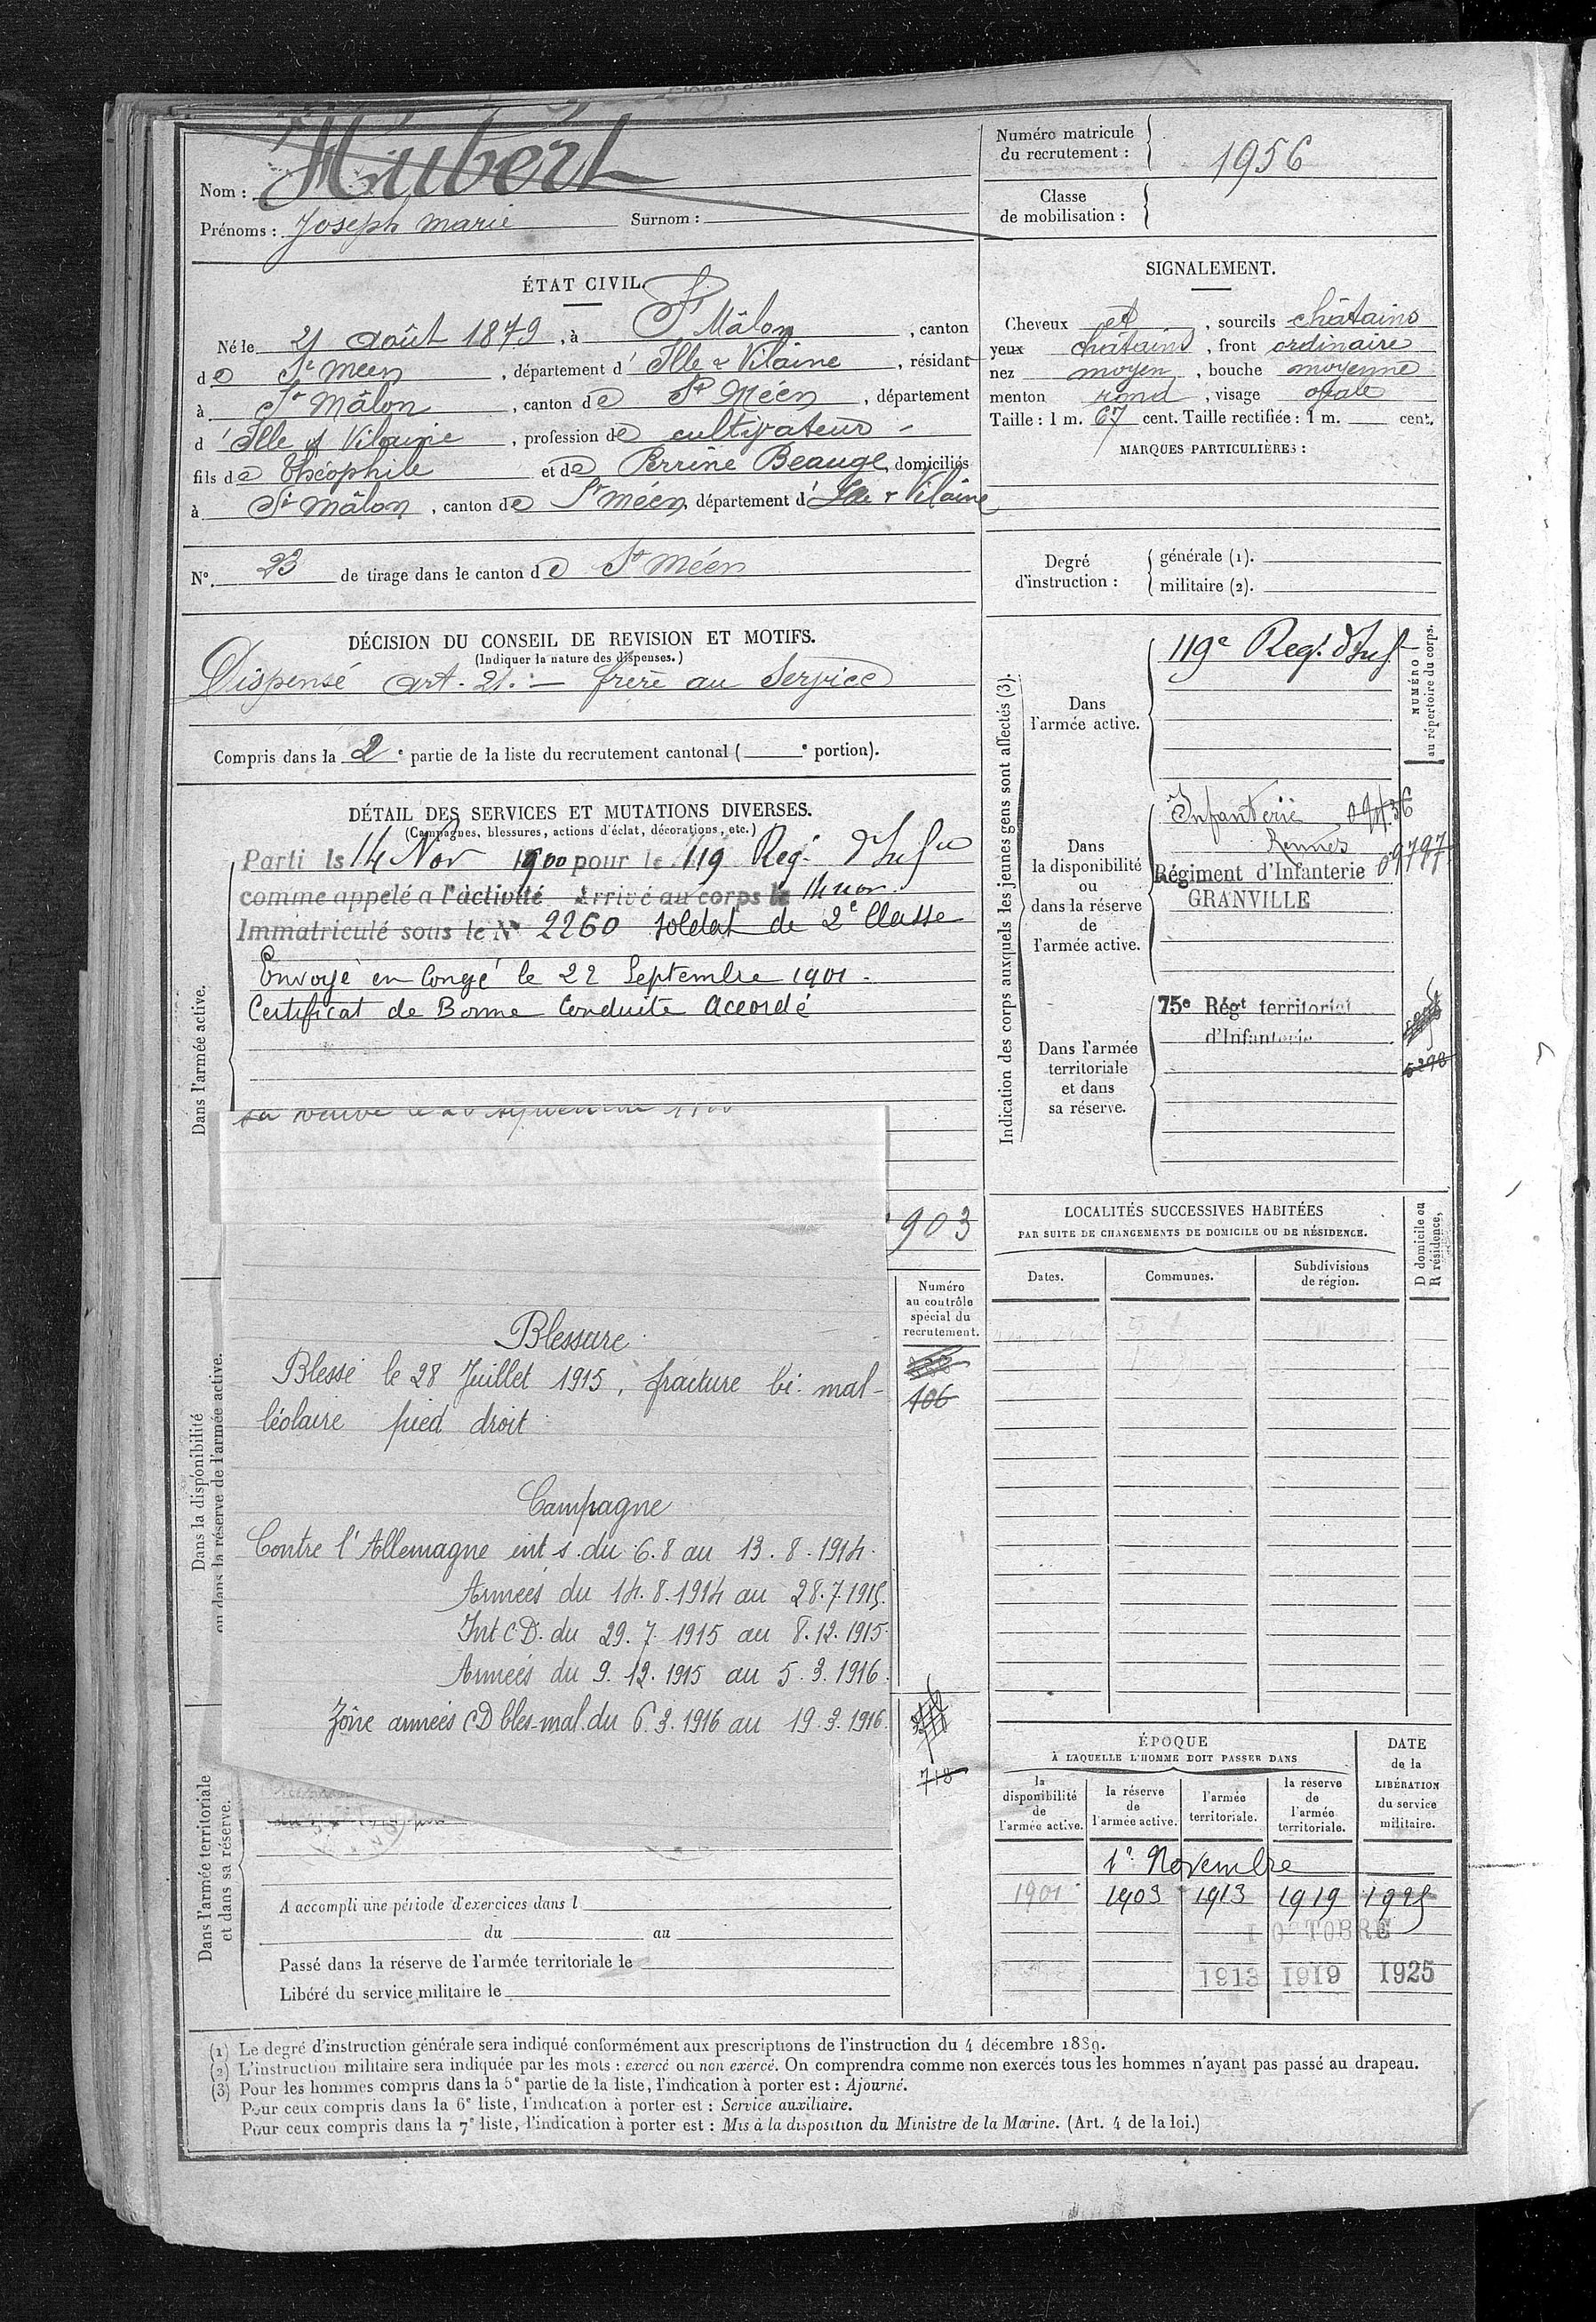 Nom : Hubert
Prénoms : Joseph Marie Surnom :
Numéro matricule
du recrutement : 1956
Classe
de mobilisation :
ÉTAT CIVIL.
Né le 21 Août 1879, à St Mâlon, canton
de St Meen, département d'Ille & Vilaine, résidant
à St Mâlon, canton de St Méen, département
d'Ille & Vilaine, profession de cultivateur
fils de Théophile et de Perrine Beaugé, domiciliés
à St Mâlon, canton de St Méen, département d'Ille & Vilaine
N° 23 de tirage dans le canton de St Méen
SIGNALEMENT.
Cheveux et, sourcils châtains
yeux châtains, front ordinaire
nez moyen, bouche moyenne
menton rond, visage ovale
Taille : 1 m. 67 cent. Taille rectifiée : 1 m. cent.
MARQUES PARTICULIÈRES :
Degré
d'instruction :
générale (1).
militaire (2).
DÉCISION DU CONSEIL DE REVISION ET MOTIFS.
(Indiquer la nature des dispenses.)
Dispensé art. 21. — frère au Service
Compris dans la 2e partie de la liste du recrutement cantonal ( e portion).
DÉTAIL DES SERVICES ET MUTATIONS DIVERSES.
(Campagnes, blessures, actions d'éclat, décorations, etc.)
Dans l'armée active.
Parti le 14 Nov 1900 pour le 119 Reg. d'Infie
comme appelé a l'activité Arrivé au corps le 14 nov.
Immatriculé sous le N° 2260 soldat de 2e Classe
Envoyé en Congé le 22 Septembre 1901.
Certificat de Bonne Conduite Accordé
903
Dans la disponibilité
ou dans la réserve de l'armée active.
Numéro
au contrôle
spécial du
recrutement.
106
718
Blessure
Blessé le 28 Juillet 1915, fracture bi-mal-
léolaire pied droit
Campagne
Contre l'Allemagne int s. du 6.8 au 13.8.1914.
Armées du 14.8.1914 au 28.7.1915.
Int CD. du 29.7.1915 au 8.12.1915
Armées du 9.12.1915 au 5.3.1916.
Zône armées CD bles-mal. du 6.3.1916 au 19.3.1916.
Dans l'armée territoriale
et dans sa réserve.
A accompli une période d'exercices dans l
du au
Passé dans la réserve de l'armée territoriale le
Libéré du service militaire le
Indication des corps auxquels les jeunes gens sont affectés (3).
NUMÉRO
au répertoire du corps.
Dans
l'armée active.
119e Reg. d'Inf
Dans
la disponibilité
ou
dans la réserve
de
l'armée active.
Infanterie
Rennes
Régiment d'Infanterie 09797
GRANVILLE
Dans l'armée
territoriale
et dans
sa réserve.
75e Régt territorial
d'Infanterie
5298
LOCALITÉS SUCCESSIVES HABITÉES
PAR SUITE DE CHANGEMENTS DE DOMICILE OU DE RÉSIDENCE.
D domicile ou
R résidence,
Dates. Communes. Subdivisions
de région.
ÉPOQUE
À LAQUELLE L'HOMME DOIT PASSER DANS
la
disponibilité
de
l'armée active.
la réserve
de
l'armée active.
l'armée
territoriale.
la réserve
de
l'armée
territoriale.
DATE
de la
LIBÉRATION
du service
militaire.
1er Novembre
1901 1903 1913 1919 1925
1 OCTOBRE
1913 1919 1925
(1) Le degré d'instruction générale sera indiqué conformément aux prescriptions de l'instruction du 4 décembre 1889.
(2) L'instruction militaire sera indiquée par les mots : exercé ou non exercé. On comprendra comme non exercés tous les hommes n'ayant pas passé au drapeau.
(3) Pour les hommes compris dans la 5e partie de la liste, l'indication à porter est : Ajourné.
Pour ceux compris dans la 6e liste, l'indication à porter est : Service auxiliaire.
Pour ceux compris dans la 7e liste, l'indication à porter est : Mis à la disposition du Ministre de la Marine. (Art. 4 de la loi.)